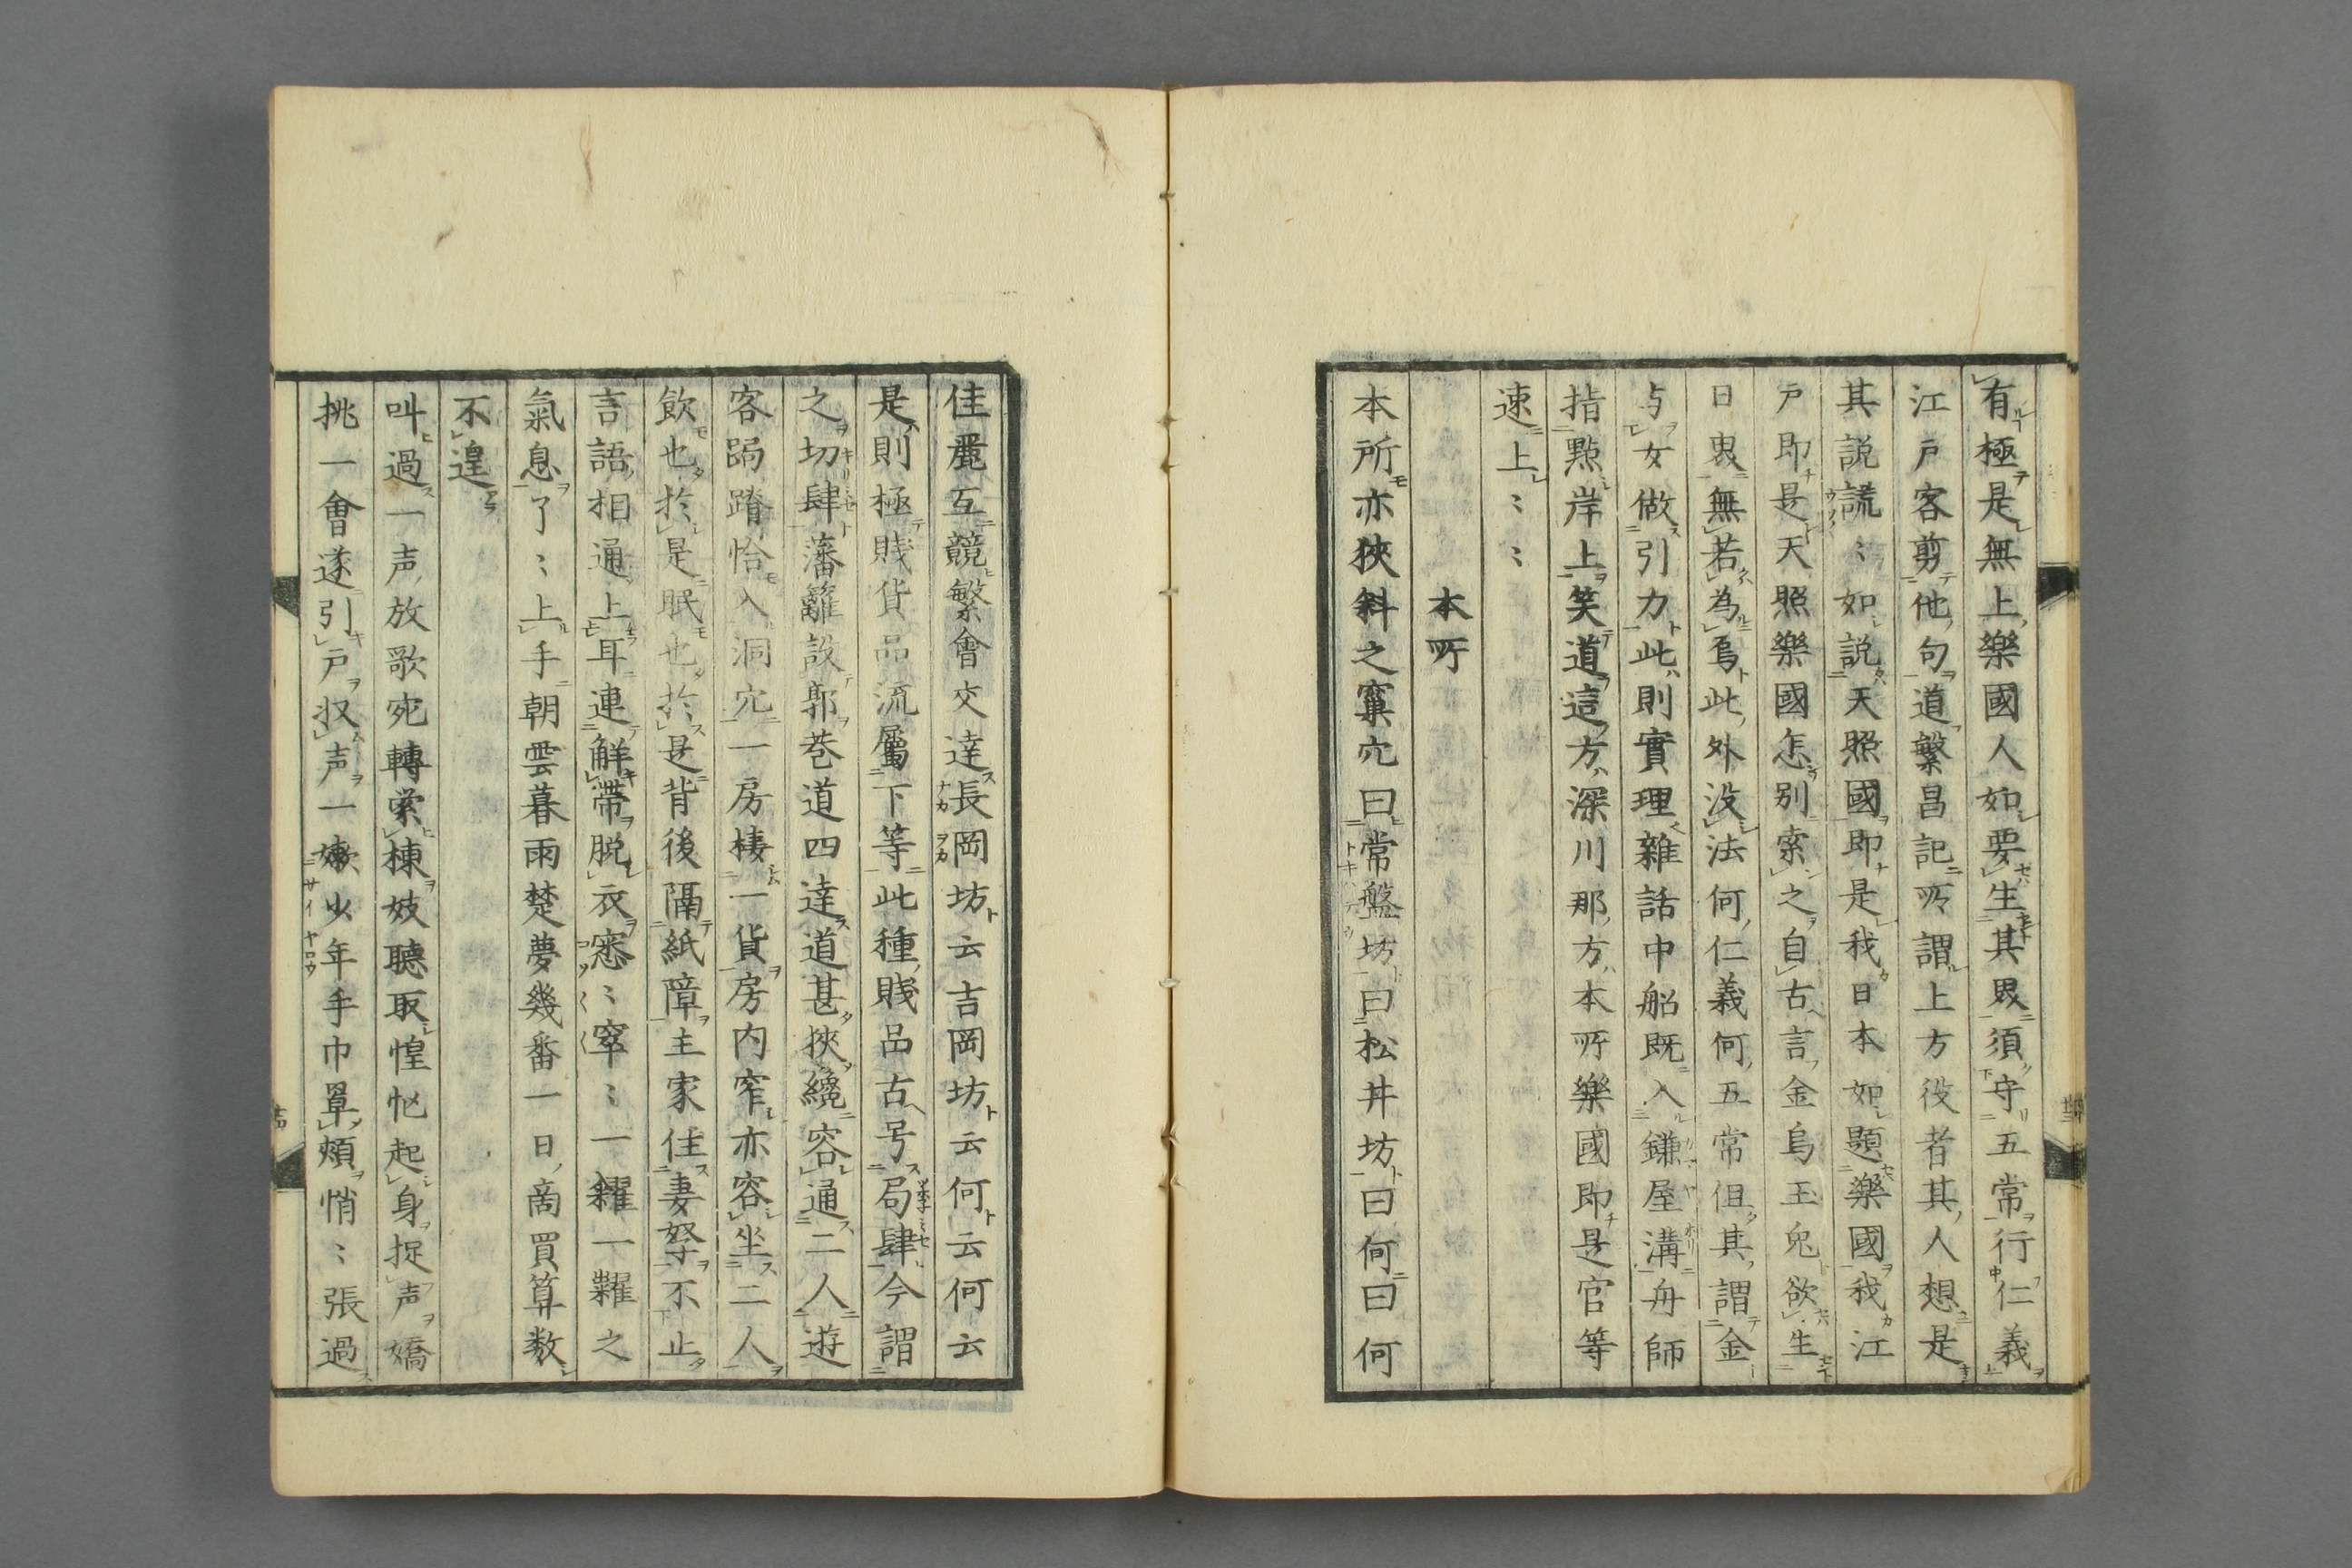 有極是無上樂國人如要生其畏須守五常行仁義
江戸客剪他句道繁昌記所謂上方役者其人想是
其説謊〻如説天照國即是我日本如題樂國我江
戸即是天照樂國怎別索之自古言金烏玉兔欲生
日畏無若為烏此外没法何仁義何五常但其謂金
与女做引力此則實理雜話中船既入鎌屋溝舟師
指點岸上笑道這方深川那方本所樂國即是官等
速上〻〻
本所
本所亦狹斜之窠穴曰常盤坊曰松井坊曰何曰何
佳麗互競繁會交達長岡坊云吉岡坊云何云何云
是則極賤貨品流屬下等此種賤品古号局肆今謂
之切肆藩籬設郭巷道四達道甚狹纔容通二人遊
客跼蹐恰入洞穴一房棲一貨房内窄亦容坐二人
飲也於是眠也於是背後隔紙障主家住妻孥不止
言語相通上耳連解帶脱衣窸〻窣〻一糶一糴之
氣息了〻上手朝雲暮雨楚夢幾番一日啇買算数
不遑
叫過一声放歌宛轉縈棟妓聽取惶忙起身捉声嬌
挑一會遂引戸扠声一嫩少年手巾罩頬悄〻張過